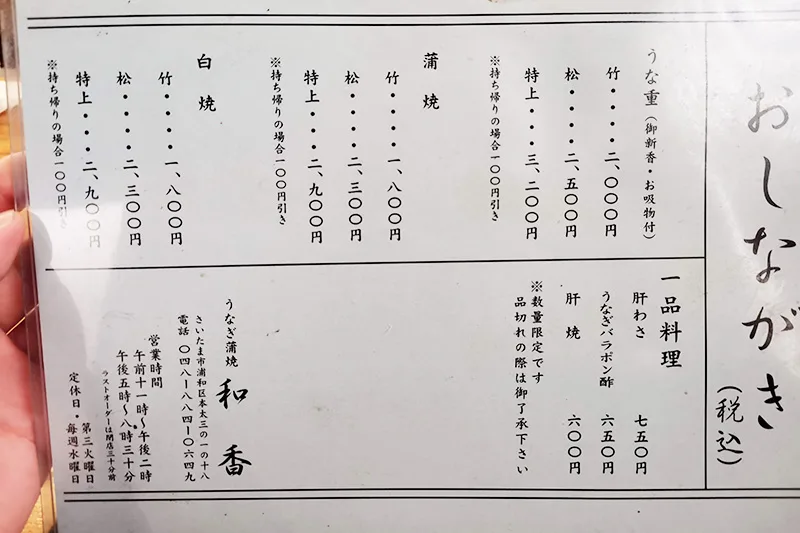 おしながき
(税込)
うな重(御新香・お吸物付)
竹・・・・二、〇〇〇円
松・・・・二、五〇〇円
特上・・・三、二〇〇円
※持ち帰りの場合一〇〇円引き
蒲焼
竹・・・・一、八〇〇円
松・・・・二、三〇〇円
特上・・・二、九〇〇円
※持ち帰りの場合一〇〇円引き
白焼
竹・・・・一、八〇〇円
松・・・・二、三〇〇円
特上・・・二、九〇〇円
※持ち帰りの場合一〇〇円引き
一品料理
肝わさ 七五〇円
うなぎバラポン酢 六五〇円
肝焼 六〇〇円
※数量限定です
品切れの際は御了承下さい
うなぎ蒲焼 和香
さいたま市浦和区本太三の一の十八
電話 〇四八ー八八四ー〇六四九
営業時間
午前十一時〜午後二時
午後五時〜八時三十分
ラストオーダーは閉店三十分前
定休日・第三火曜日
毎週水曜日